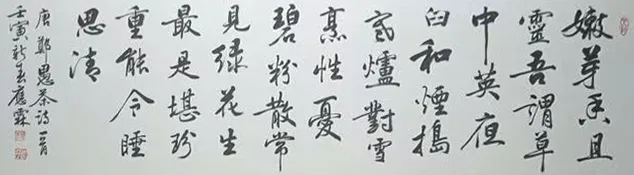 嫩芽香且
靈吾謂草
中英夜
臼和煙搗
寒爐對雪
烹惟憂
碧粉散常
見緑花生
最是堪珍
重能令睡
思清
唐鄭愚茶詩一首
壬寅新春應霖